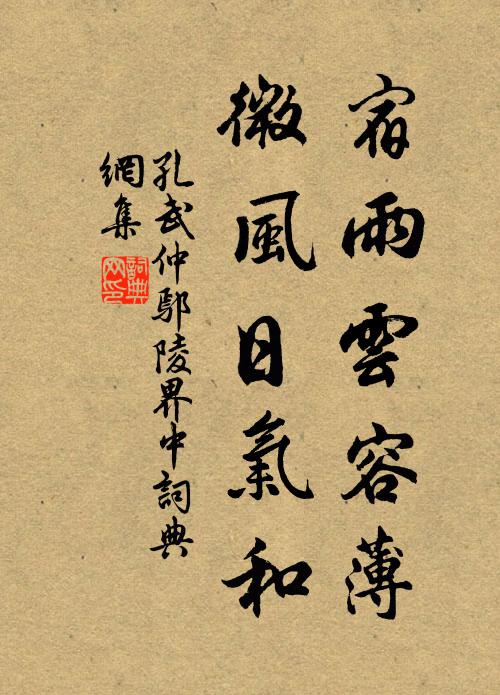 宿雨雲容薄
微風日氣和
孔武仲鄢陵界中詞典
網集
詞典
网印